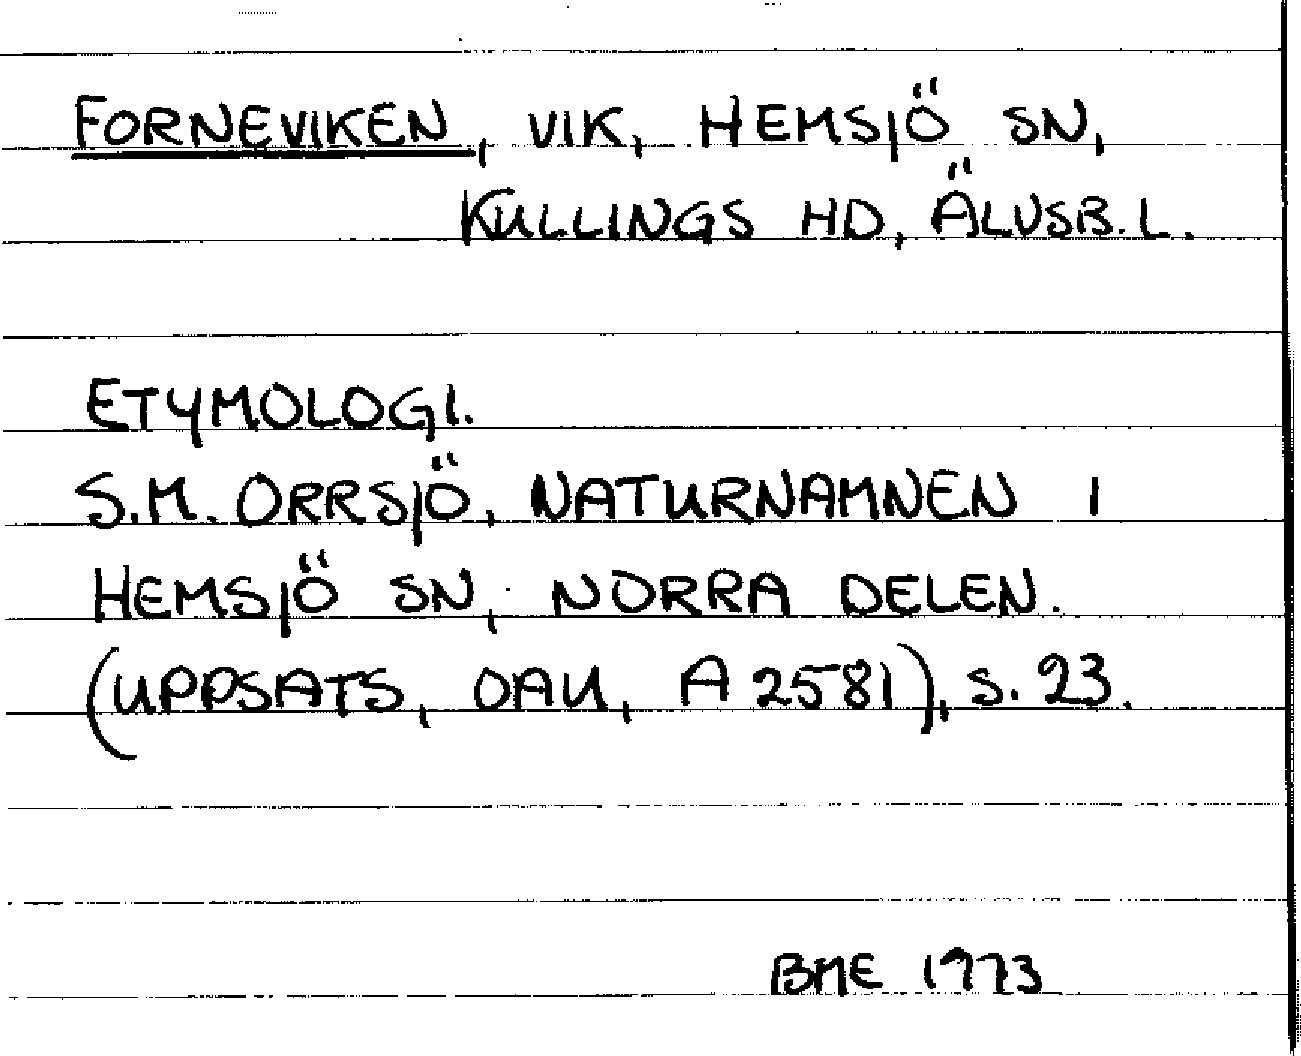 FORNEVIKEN, VIK, HEMSJÖ SN,
KULLINGS HD, ÄLVSB.L.
ETYMOLOGI.
S.M. ORRSJÖ, NATURNAMNEN I
HEMSJÖ SN, NORRA DELEN.
(UPPSATS, OAU, A 2581), s. 23.
BME 1973